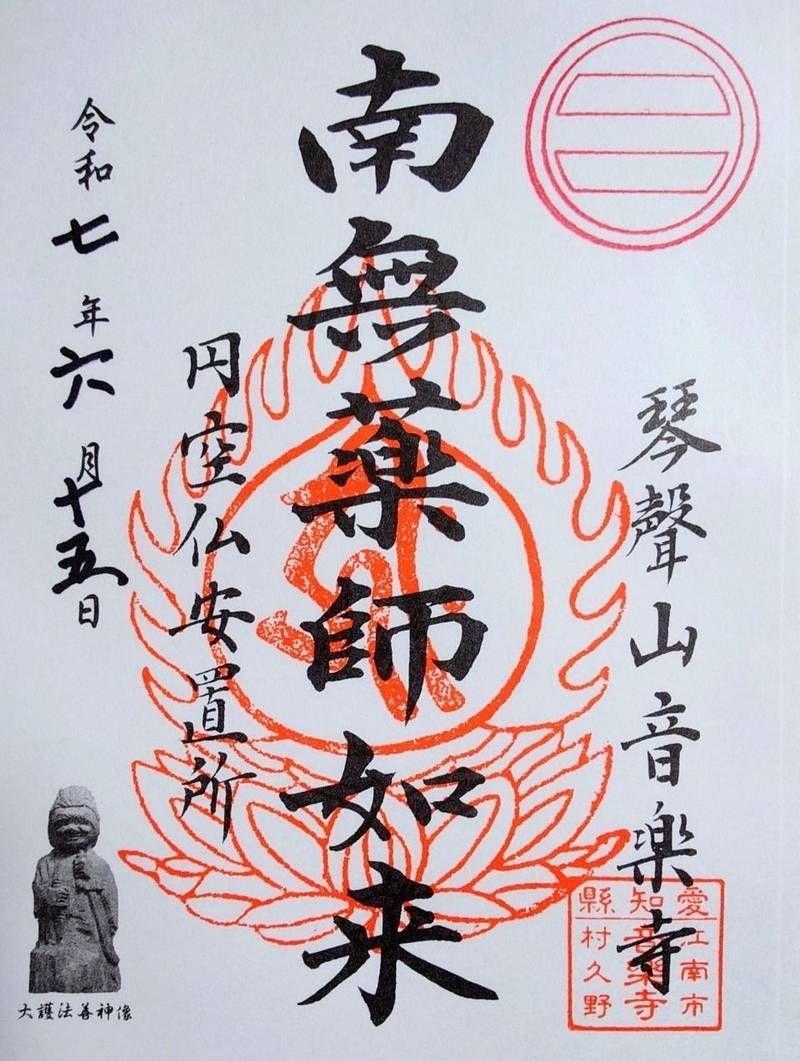 琴聲山音楽寺
南無薬師如来
円空仏安置所
令和七年六月十五日
愛江南市
知音樂寺
縣村久野
大護法善神像